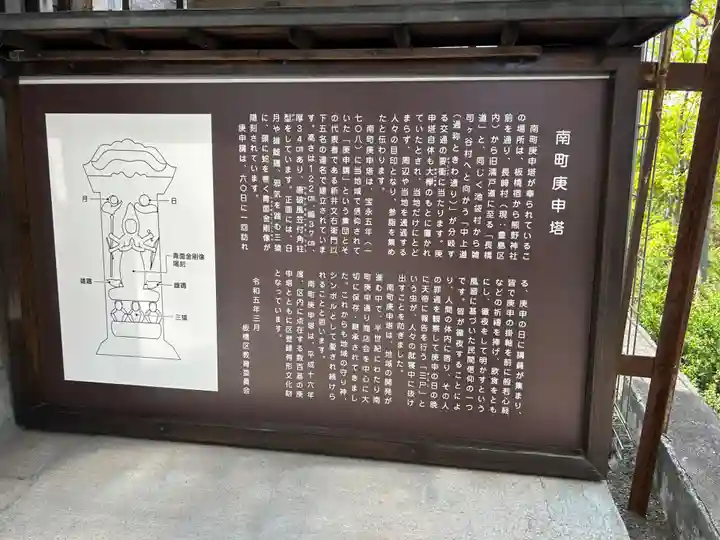 南町庚申塔
南町庚申塔が奉られているこ
の場所は、板橋宿から熊野神社
前を通り、長崎村（現・豊島区
内）から清戸道に至る「長橋
道」と、同じく池袋村から雑
司ヶ谷村へと向かう「中上道
（通称ときわ通り）」が分岐す
る交通の要衝に当たります。庚
申塔自体も大欅のもとに置かれ
ていたとされ、当地だけにとど
まらず、周辺や当地を通過する
人々の目印となり、参詣を集め
たと伝わります。
南町庚申塔は、宝永五年（一
七〇八）に当地域で信仰されて
いた「庚申講」という集団とそ
の代表者である新井文右衛門以
下五名の連名で建立されていま
す。高さは122㎝、幅37㎝、
厚34㎝あり、唐破風笠付角柱
型をしています。正面には、日
月や雄雌鶏、邪気を踏む三猿
に、頭に蛇を巻く青面金剛像が
陽刻されています。
庚申講は、六〇日に一回訪れ
る、庚申の日に講員が集まり、
皆で庚申の掛軸を前に般若心経
などの祈祷を捧げ、飲食をとも
にし、徹夜をして明かすという
風習に基づいた民間信仰の一つ
です。皆が徹夜することによ
り、人間の体内に宿り、その人
の罪過を観察して庚申の日の晩
に天帝に報告を行う「三尸」と
いう虫が、人々の就寝中に抜け
出すことを防ぎました。
南町庚申塔は、地域の開発が
進む中で、半世紀にわたり南
町庚申通り商店会を中心に大
切に保存、継承されてきまし
た。これからも地域の守り神、
シンボルとして愛され続けら
れることと思います。
南町庚申塔は、平成十六年
度、区内に点在する数百基の庚
申塔とともに区登録有形文化財
となっています。
令和五年三月
板橋区教育委員会
月
日
青面金剛像
陽刻
雄鶏
雌鶏
三猿